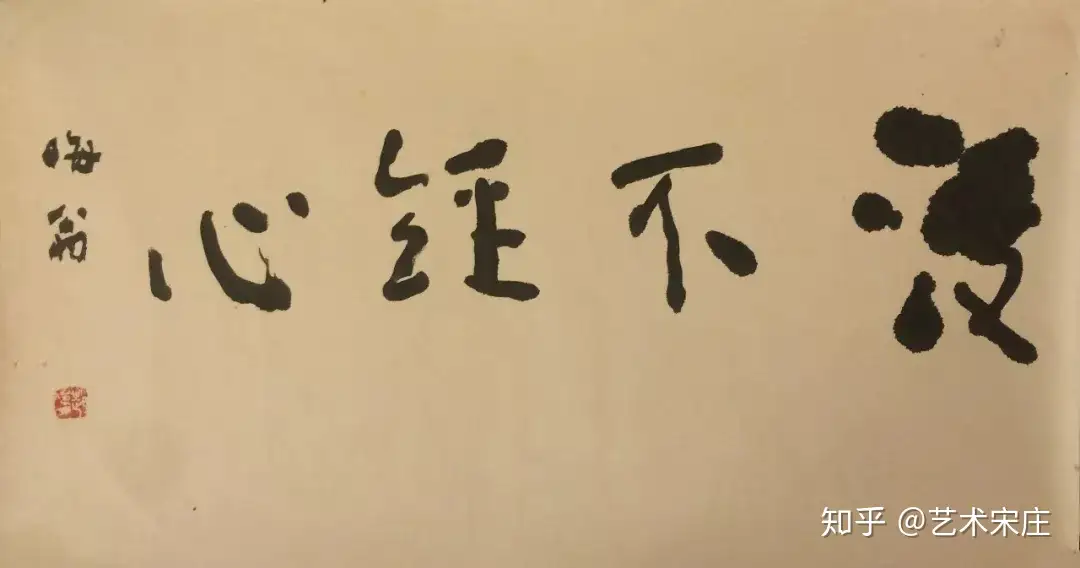 漫不經心
海翁
知乎 @艺术宋庄